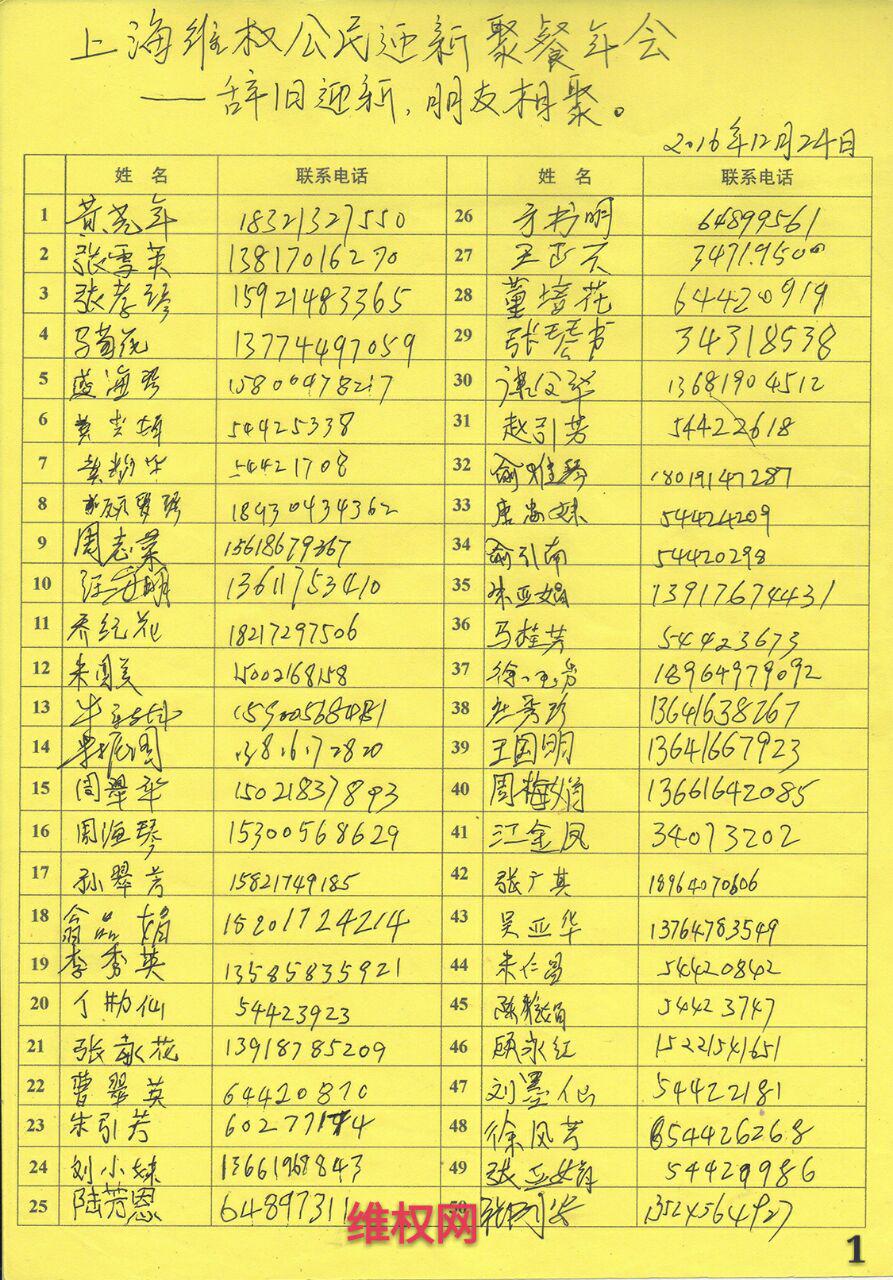 上海维权公民迎新聚餐年会
——辞旧迎新，朋友相聚。
2016年12月24日
姓 名 联系电话 姓 名 联系电话
1 18321327550 26 方书明 64899561
2 张雪英 13817016270 27 王正 3471.9500
3 张孝琴 15921483365 28 董培花 64420919
4 马菊花 13774497059 29 张琴书 34318538
5 蓝海 30 13681904512
6 54425338 31 赵引芳 54422618
7 54421708 32 俞雅琴 18019147287
8 18930434362 33 唐 妹 54424209
9 周志荣 15618679367 34 俞引南 54420298
10 13611753410 35 朱亚娟 13917674431
11 乔纪花 18217297506 36 马桂芳 54423673
12 朱 美 15002168158 37 徐 芳 18964979092
13 38 庄秀珍 13641638267
14 39 王国明 13641667923
15 周翠华 15021837893 40 周梅娟 13661642085
16 周海琴 15300568629 41 江金凤 34073202
17 孙翠芳 15821749185 42 张广其 18964070606
18 翁品娟 18201724214 43 吴亚华 13764783549
19 李秀英 13585835921 44 朱仁昌 54420842
20 丁 仙 54423923 45 陈 娟 54423747
21 张永花 13918785209 46 顾永红 15221541651
22 曹翠英 64420870 47 刘墨仙 54422181
23 朱引芳 48 徐凤芳 54426268
24 刘小妹 13661968843 49 张亚娟 54429986
25 陆芳恩 64897311 50 13524564927
维权网
1